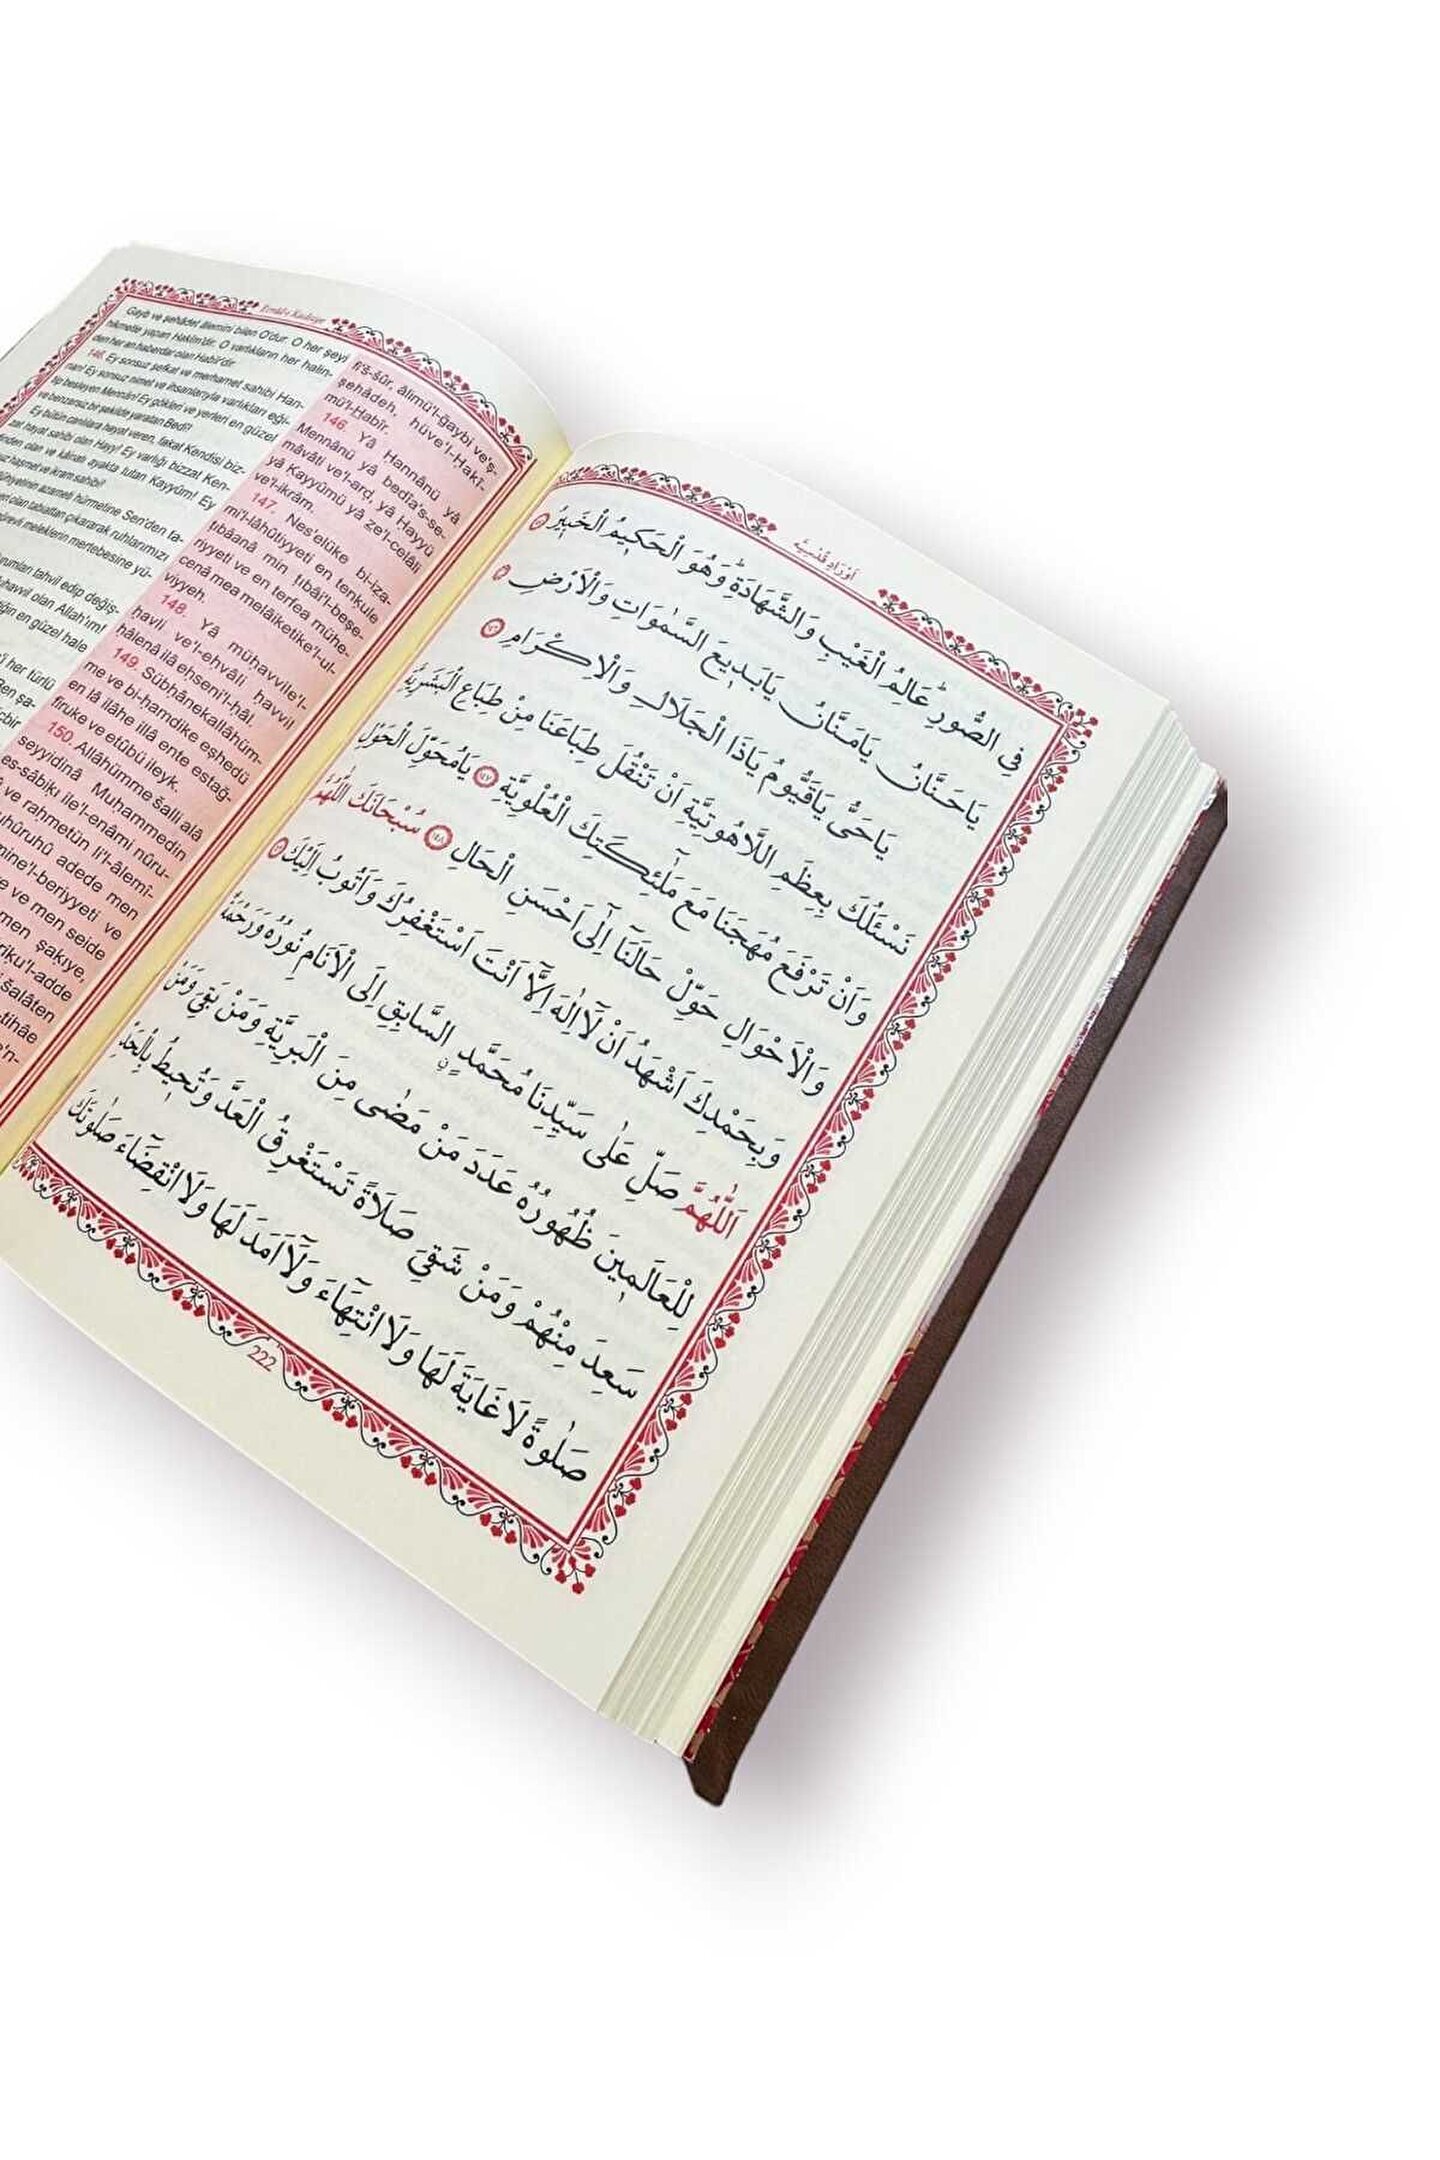 Evrâd-ı Kudsiyye
Gayb ve şehâdet âlemini bilen O'dur. O her şeyi
hikmetle yapan Hakîm'dir. O varlıkların her halin-
den her an haberdar olan Habîr'dir.
146. Ey sonsuz şefkat ve merhamet sahibi Han-
nan! Ey sonsuz nimet ve ihsanlarıyla varlıkları eği-
tip besleyen Mennân! Ey gökleri ve yerleri en güzel
ve benzersiz bir şekilde yaratan Bedî!
Ey bütün canlılara hayat veren, fakat Kendisi biz-
zat hayat sahibi olan Hayy! Ey varlığı bizzat Ken-
dinden olan ve kâinatı ayakta tutan Kayyûm! Ey
haşmet ve ikram sahibi!
azameti hürmetine Sen'den
olan tabiattan çıkararak ruhlarımızı
meleklerin mertebesine yü-
tahvil edip değiş-
olan Allah'ım!
en güzel hale
her türlü
fi's-sûr, âlimü'l-ğaybi ve'ş-
şehâdeh, hüve'l-Hakî-
mü'l-Habîr.
146. Yâ Hannânü yâ
Mennânü yâ bedîa's-se-
mâvâti ve'l-ard, yâ Hayyü
yâ Kayyûmü yâ ze'l-celâli
ve'l-ikrâm.
147. Nes'elüke bi-iza-
mi'l-lâhûtiyyeti en tenkule
tıbâanâ min tıbâi'l-beşe-
riyyeti ve en terfea mühe-
cenâ mea melâiketike'l-ul-
viyyeh.
148. Yâ mühavvile'l-
havli ve'l-ehvâli havvil
hâlenâ ilâ ehseni'l-hâl.
149. Sübhânekallâhüm-
me ve bi-hamdike eşhedü
en lâ ilâhe illâ ente estağ-
firuke ve etûbü ileyk.
150. Allâhümme salli alâ
seyyidinâ Muhammedin
es-sâbikı ile'l-enâmi nûru-
ve rahmetün li'l-âlemî-
zuhûruhû adede men
mine'l-beriyyeti ve
ve men seide
men şakıye,
salâten
اَوْرَادِ قُدْسِيَّه
فِى الصُّورِ عَالِمُ الْغَيْبِ وَالشَّهَادَةِ وَهُوَ الْحَكِيمُ الْخَبِيرُ
يَاحَنَّانُ يَامَنَّانُ يَابَدِيعَ السَّمٰوَاتِ وَالْاَرْضِ
يَاحَىُّ يَاقَيُّومُ يَاذَا الْجَلَالِ وَالْاِكْرَامِ
نَسْئَلُكَ بِعِظَمِ اللَّاهُوتِيَّةِ اَنْ تَنْقُلَ طِبَاعَنَا مِنْ طِبَاعِ الْبَشَرِيَّةِ
وَاَنْ تَرْفَعَ مُهَجَنَا مَعَ مَلٰٓئِكَتِكَ الْعُلْوِيَّةِ ١٤٧ يَامُحَوِّلَ الْحَوْلِ
وَالْاَحْوَالِ حَوِّلْ حَالَنَا اِلٰٓى اَحْسَنِ الْحَالِ ١٤٨ سُبْحَانَكَ اللّٰهُمَّ
وَبِحَمْدِكَ اَشْهَدُ اَنْ لَٓا اِلٰهَ اِلَّٓا اَنْتَ اَسْتَغْفِرُكَ وَاَتُوبُ اِلَيْكَ
اَللّٰهُمَّ صَلِّ عَلٰى سَيِّدِنَا مُحَمَّدٍ السَّابِقِ اِلَى الْاَنَامِ نُورُهُ وَرَحْمَةٌ
لِلْعَالَمِينَ ظُهُورُهُ عَدَدَ مَنْ مَضٰى مِنَ الْبَرِيَّةِ وَمَنْ بَقِىَ وَمَنْ
سَعِدَ مِنْهُمْ وَمَنْ شَقِىَ صَلَاةً تَسْتَغْرِقُ الْعَدَّ وَتُحِيطُ بِالْحَدِّ
صَلٰوةً لَا غَايَةَ لَهَا وَلَا انْتِهَٓاءَ وَلَٓا اَمَدَ لَهَا وَلَا انْقِضَٓاءَ صَلٰوتَكَ
222